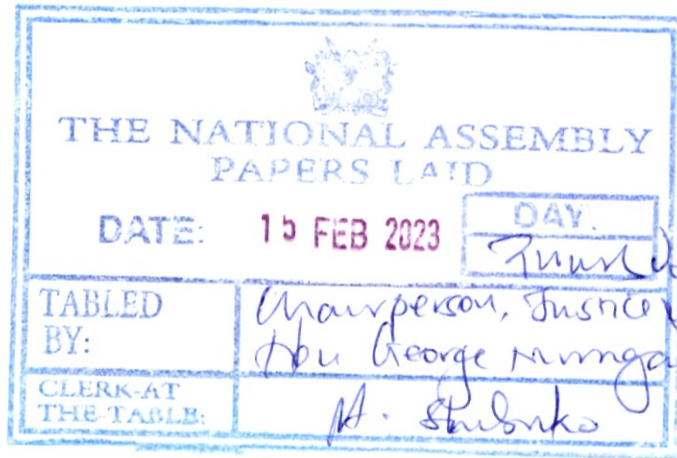 THE NATIONAL ASSEMBLY
PAPERS LAID
DATE: 15 FEB 2023
DAY.
TABLED BY:
Chairperson, Justice
Hon George
CLERK-AT THE-TABLE:
A. Shibuko